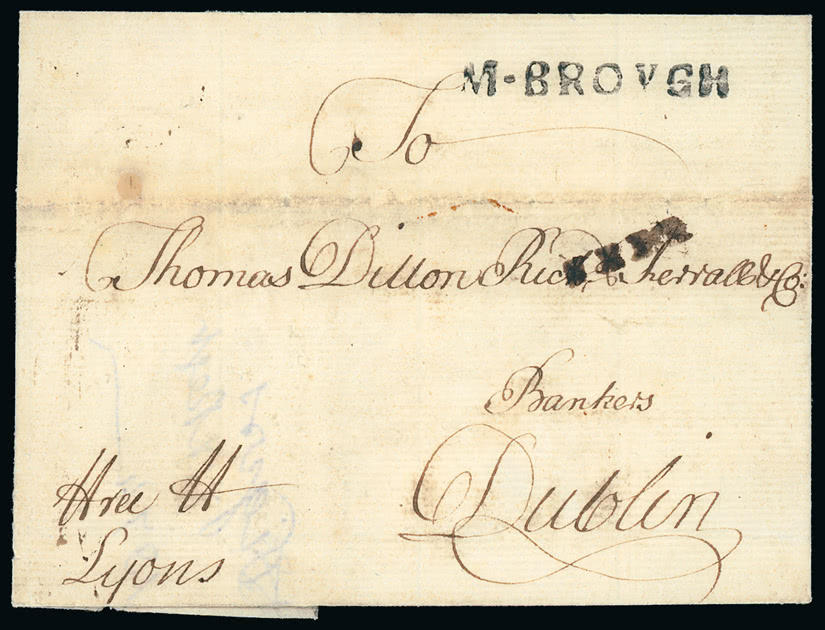 M·BROVGH
To
Thomas Dillon Richd. Ferrall & Co:
Bankers
Dublin
Free H
Lyons